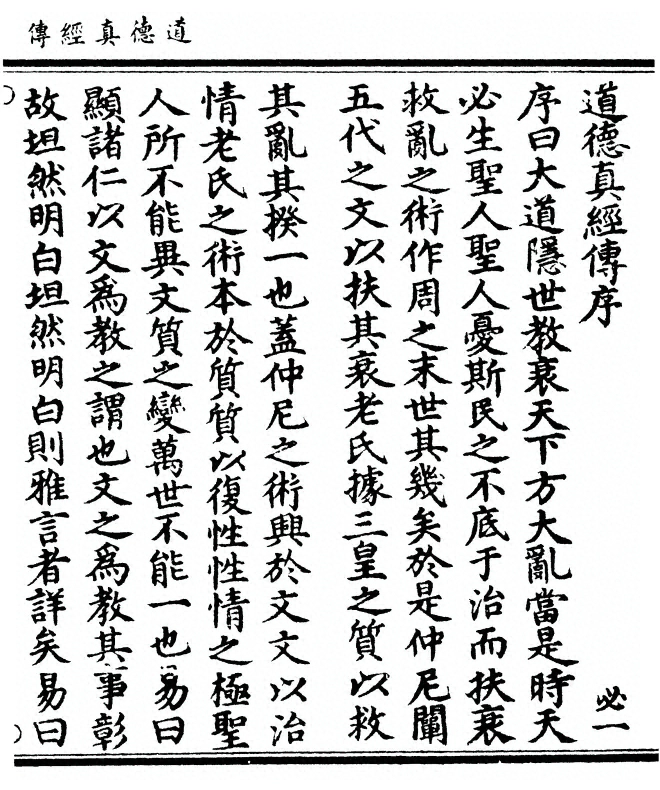 道德真經傳
道德真經傳序
必一
序曰大道隱世教衰天下方大亂當是時天
必生聖人聖人憂斯民之不底于治而扶衰
救亂之術作周之末世其幾矣於是仲尼闡
五代之文以扶其衰老氏據三皇之質以救
其亂其揆一也蓋仲尼之術興於文文以治
情老氏之術本於質質以復性性情之極聖
人所不能異文質之變萬世不能一也易曰
顯諸仁以文爲教之謂也文之爲教其事彰
故坦然明白坦然明白則雅言者詳矣易曰